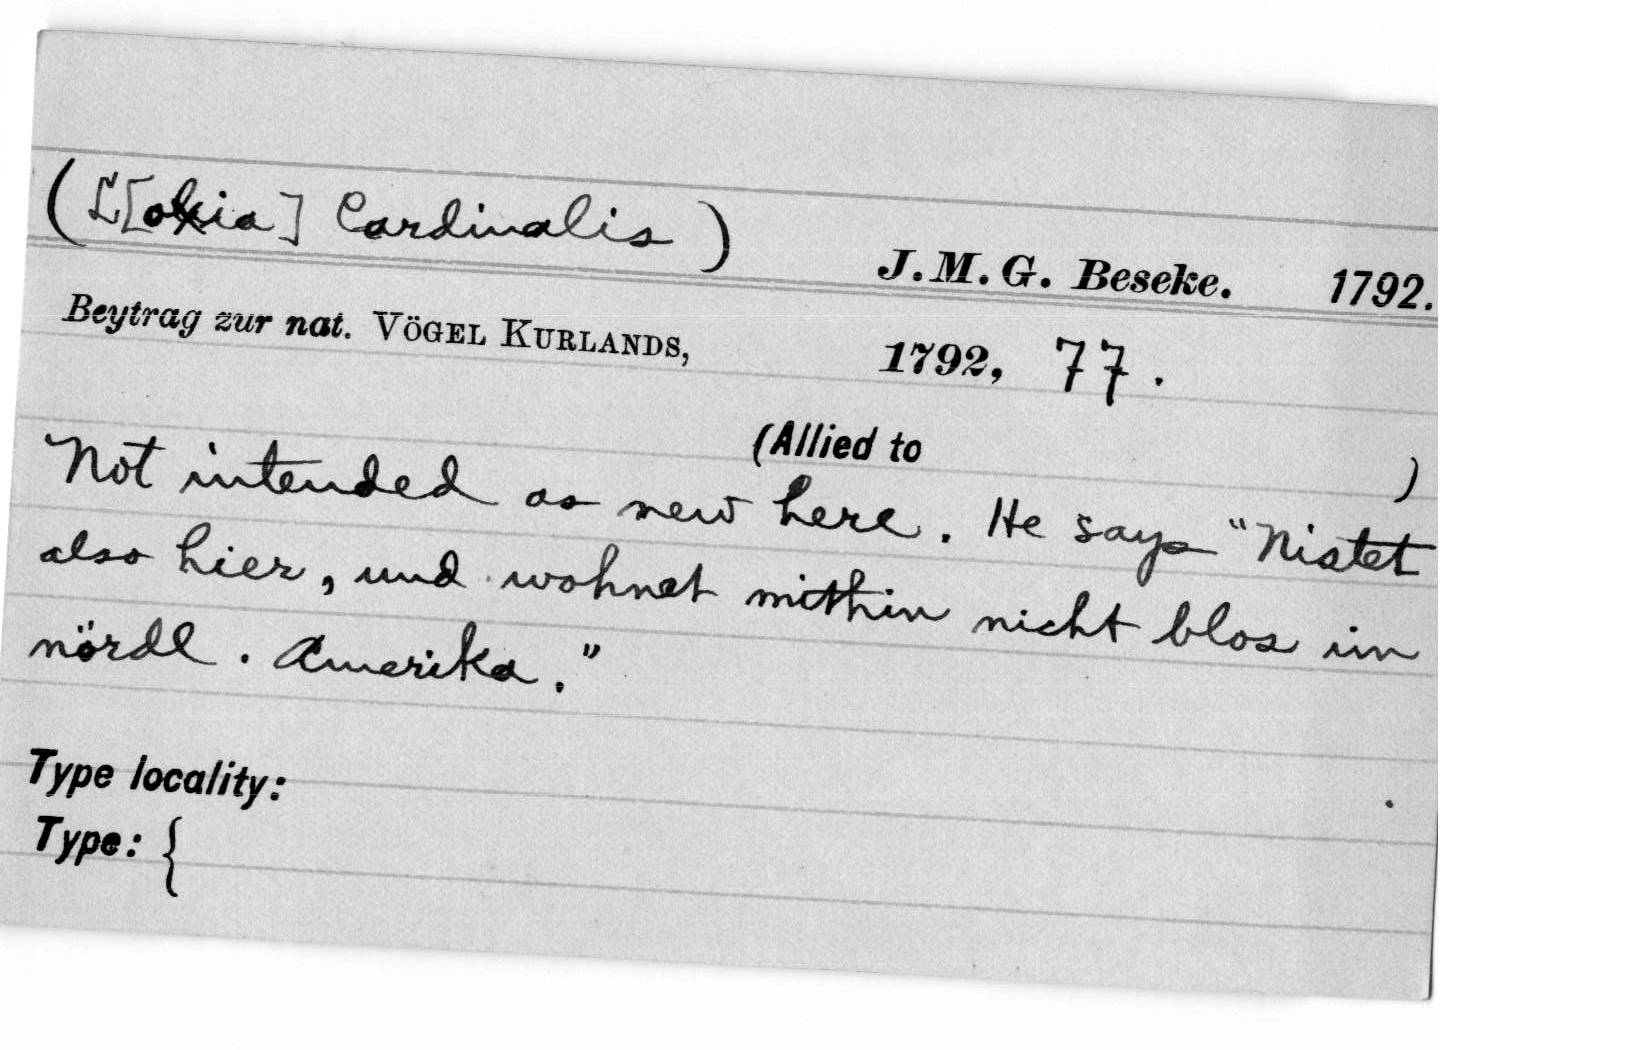 (L[oxia] Cardinalis)
J.M.G. Beseke. 1792.
Beytrag zur nat. VÖGEL KURLANDS, 1792, 77.
(Allied to )
Not intended as new here. He says "Nistet
also hier, und wohnet mithin nicht blos im
nördl. Amerika."
Type locality:
Type: {